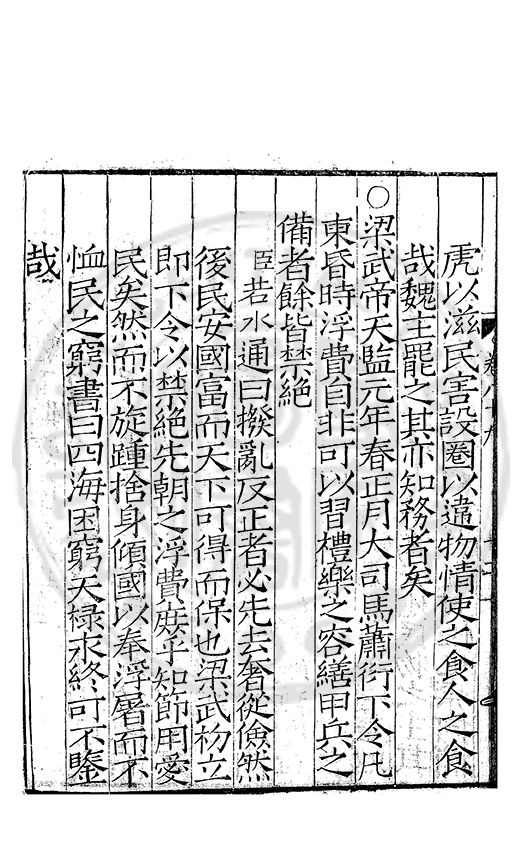 卷八十九
虎以滋民害設圈以違物情使之食人之食
哉魏主罷之其亦知務者矣
○梁武帝天監元年春正月大司馬蕭衍下令凡
東昏時浮費自非可以習禮樂之容繕甲兵之
備者餘皆禁絶
臣若水通曰撥亂反正者必先去奢從儉然
後民安國富而天下可得而保也梁武初立
即下令以禁絶先朝之浮費庶乎知節用愛
民矣然而不旋踵捨身傾國以奉浮屠而不
恤民之窮書曰四海困窮天祿永終可不鑒
哉